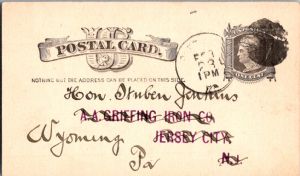 U S
POSTAL CARD.
NOTHING BUT THE ADDRESS CAN BE PLACED ON THIS SIDE.
1 PM
ONE CENT
Hon. Stuben Jenkins
A.A. GRIFFING IRON CO.
Wyoming JERSEY CITY
Pa N.J.